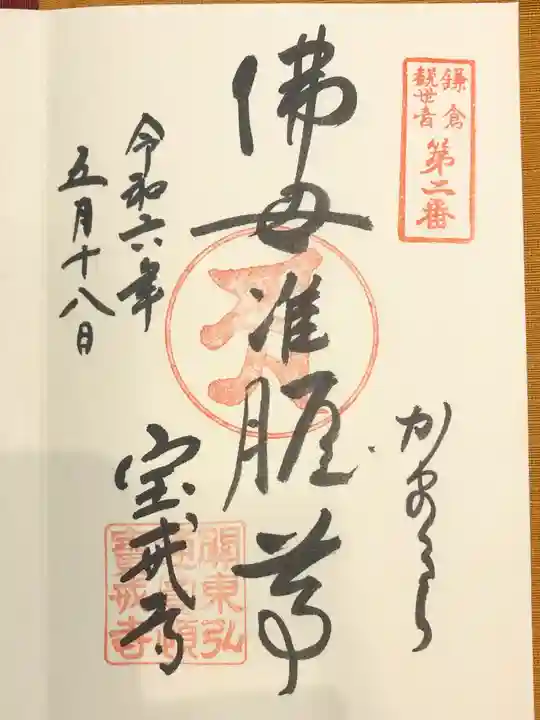 鎌倉
観世音
第二番
かまくら
佛母准胝尊
令和六年
五月十八日
宝戒寺
關東弘
寶戒寺